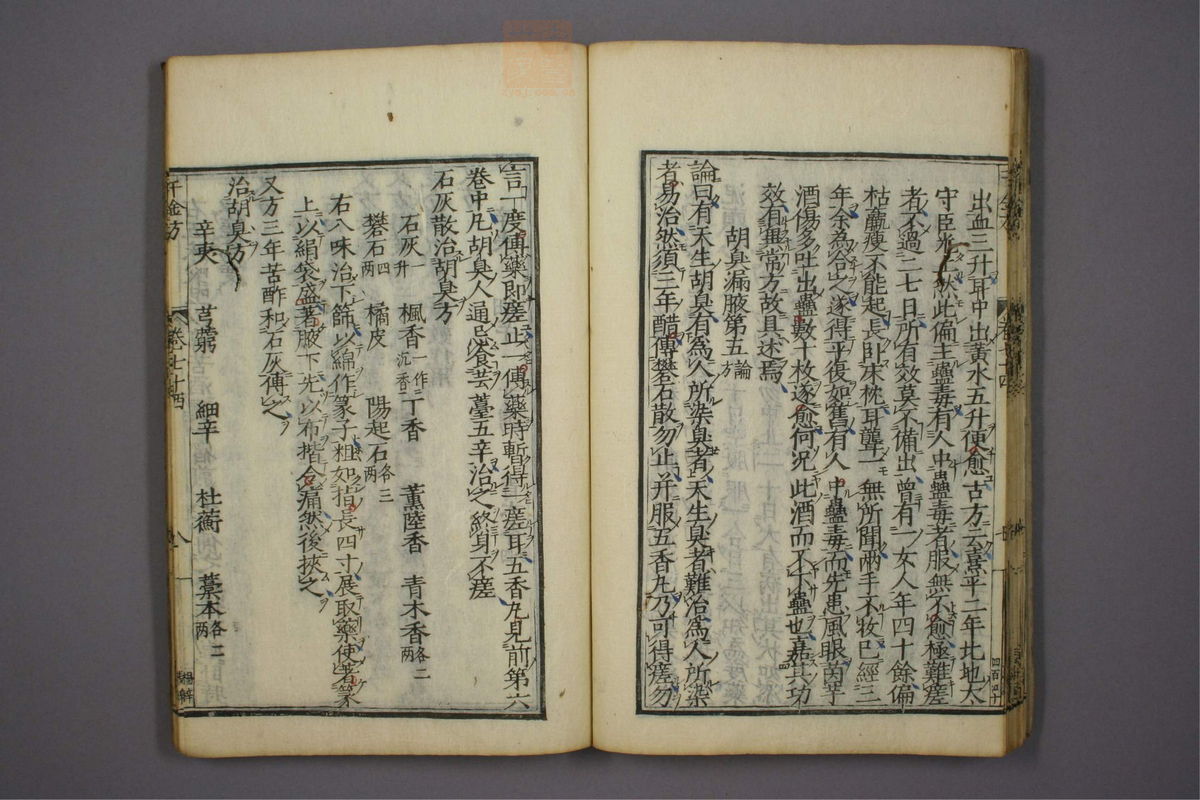 出血三升耳中出黃水五升便愈古方云熹平二年北地太
守臣光然此偏主蠱毒有人中蠱毒者服無不愈極難瘥
者不過二七日所有效莫不備出曾有一女人年四十餘偏
枯羸瘦不能起長卧床枕耳聾一無所聞兩手不收已經三
年余為合之遂得平復如舊有人中蠱毒而先患風眼茵芋
酒傷多吐出蠱數十枚遂愈何況此酒而不下蠱也嘉其功
效有異常方故具述焉
胡臭漏腋第五論方
論曰有天生胡臭有為人所染臭者天生臭者難治為人所染
者易治然須三年醋傅礬石散勿止并服五香丸乃可得瘥勿
四百五十
言一度傅藥即瘥止一傅藥時暫得一瘥耳五香丸見前第六
卷中凡胡臭人通忌食芸薹五辛治之終身不瘥
石灰散治胡臭方
石灰一升 楓香一作沉香 丁香 薰陸香 青木香各二两
礬石四两 橘皮 陽起石各三两
右八味治下篩以綿作篆子粗如指長四寸展取藥使著篆
上以絹袋盛著腋下先以布揩令痛然後挾之
又方三年苦酢和石灰傅之
治胡臭方
辛夷 芎藭 細辛 杜蘅 藁本各二两
千金方 卷七十四 八